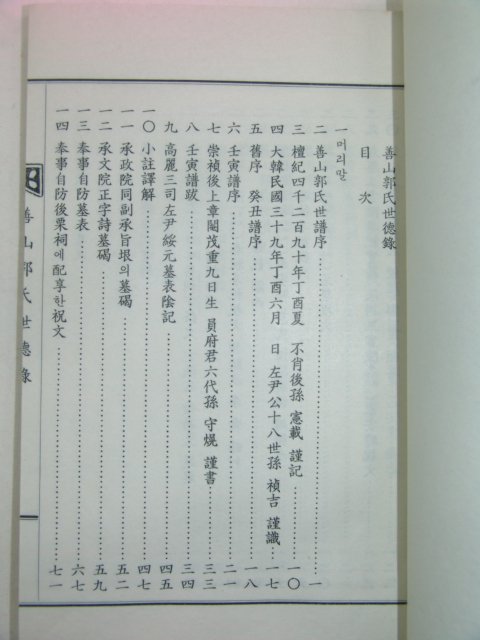 善山郭氏世德錄
目 次
一 머리말
二 善山郭氏世譜序 一
三 檀紀四千二百九十年丁酉夏 不肖後孫 憲載 謹記 一〇
四 大韓民國三十九年丁酉六月 日 左尹公十八世孫 禎吉 謹識 一七
五 舊序 癸丑譜序 一八
六 壬寅譜序 二一
七 崇禎後上章閹茂重九日生 員府君六代孫 守熀 謹書 三三
八 壬寅譜跋 三四
九 高麗三司左尹綏元墓表陰記 四五
一〇 小註譯解 四七
一一 承政院同副承旨垠의墓碣 五二
一二 承文院正字詩墓碣 五九
一三 奉事自防墓表 六七
一四 奉事自防後栗祠에配享한祝文 七一
善山郭氏世德錄